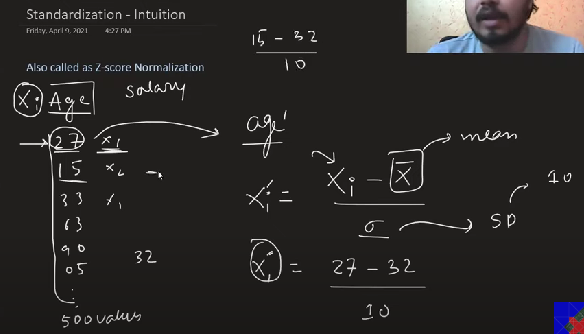 Standardization - Intuition
Friday, April 9, 2021 4:27 PM
15 - 32
10
Also called as Z-score Normalization
Xi Age salary
27 x1
15 x2
33 x1
63
90
05
32
500 values
age'
xi' = xi - x̄
σ
mean
SD
10
xi' = 27 - 32
10